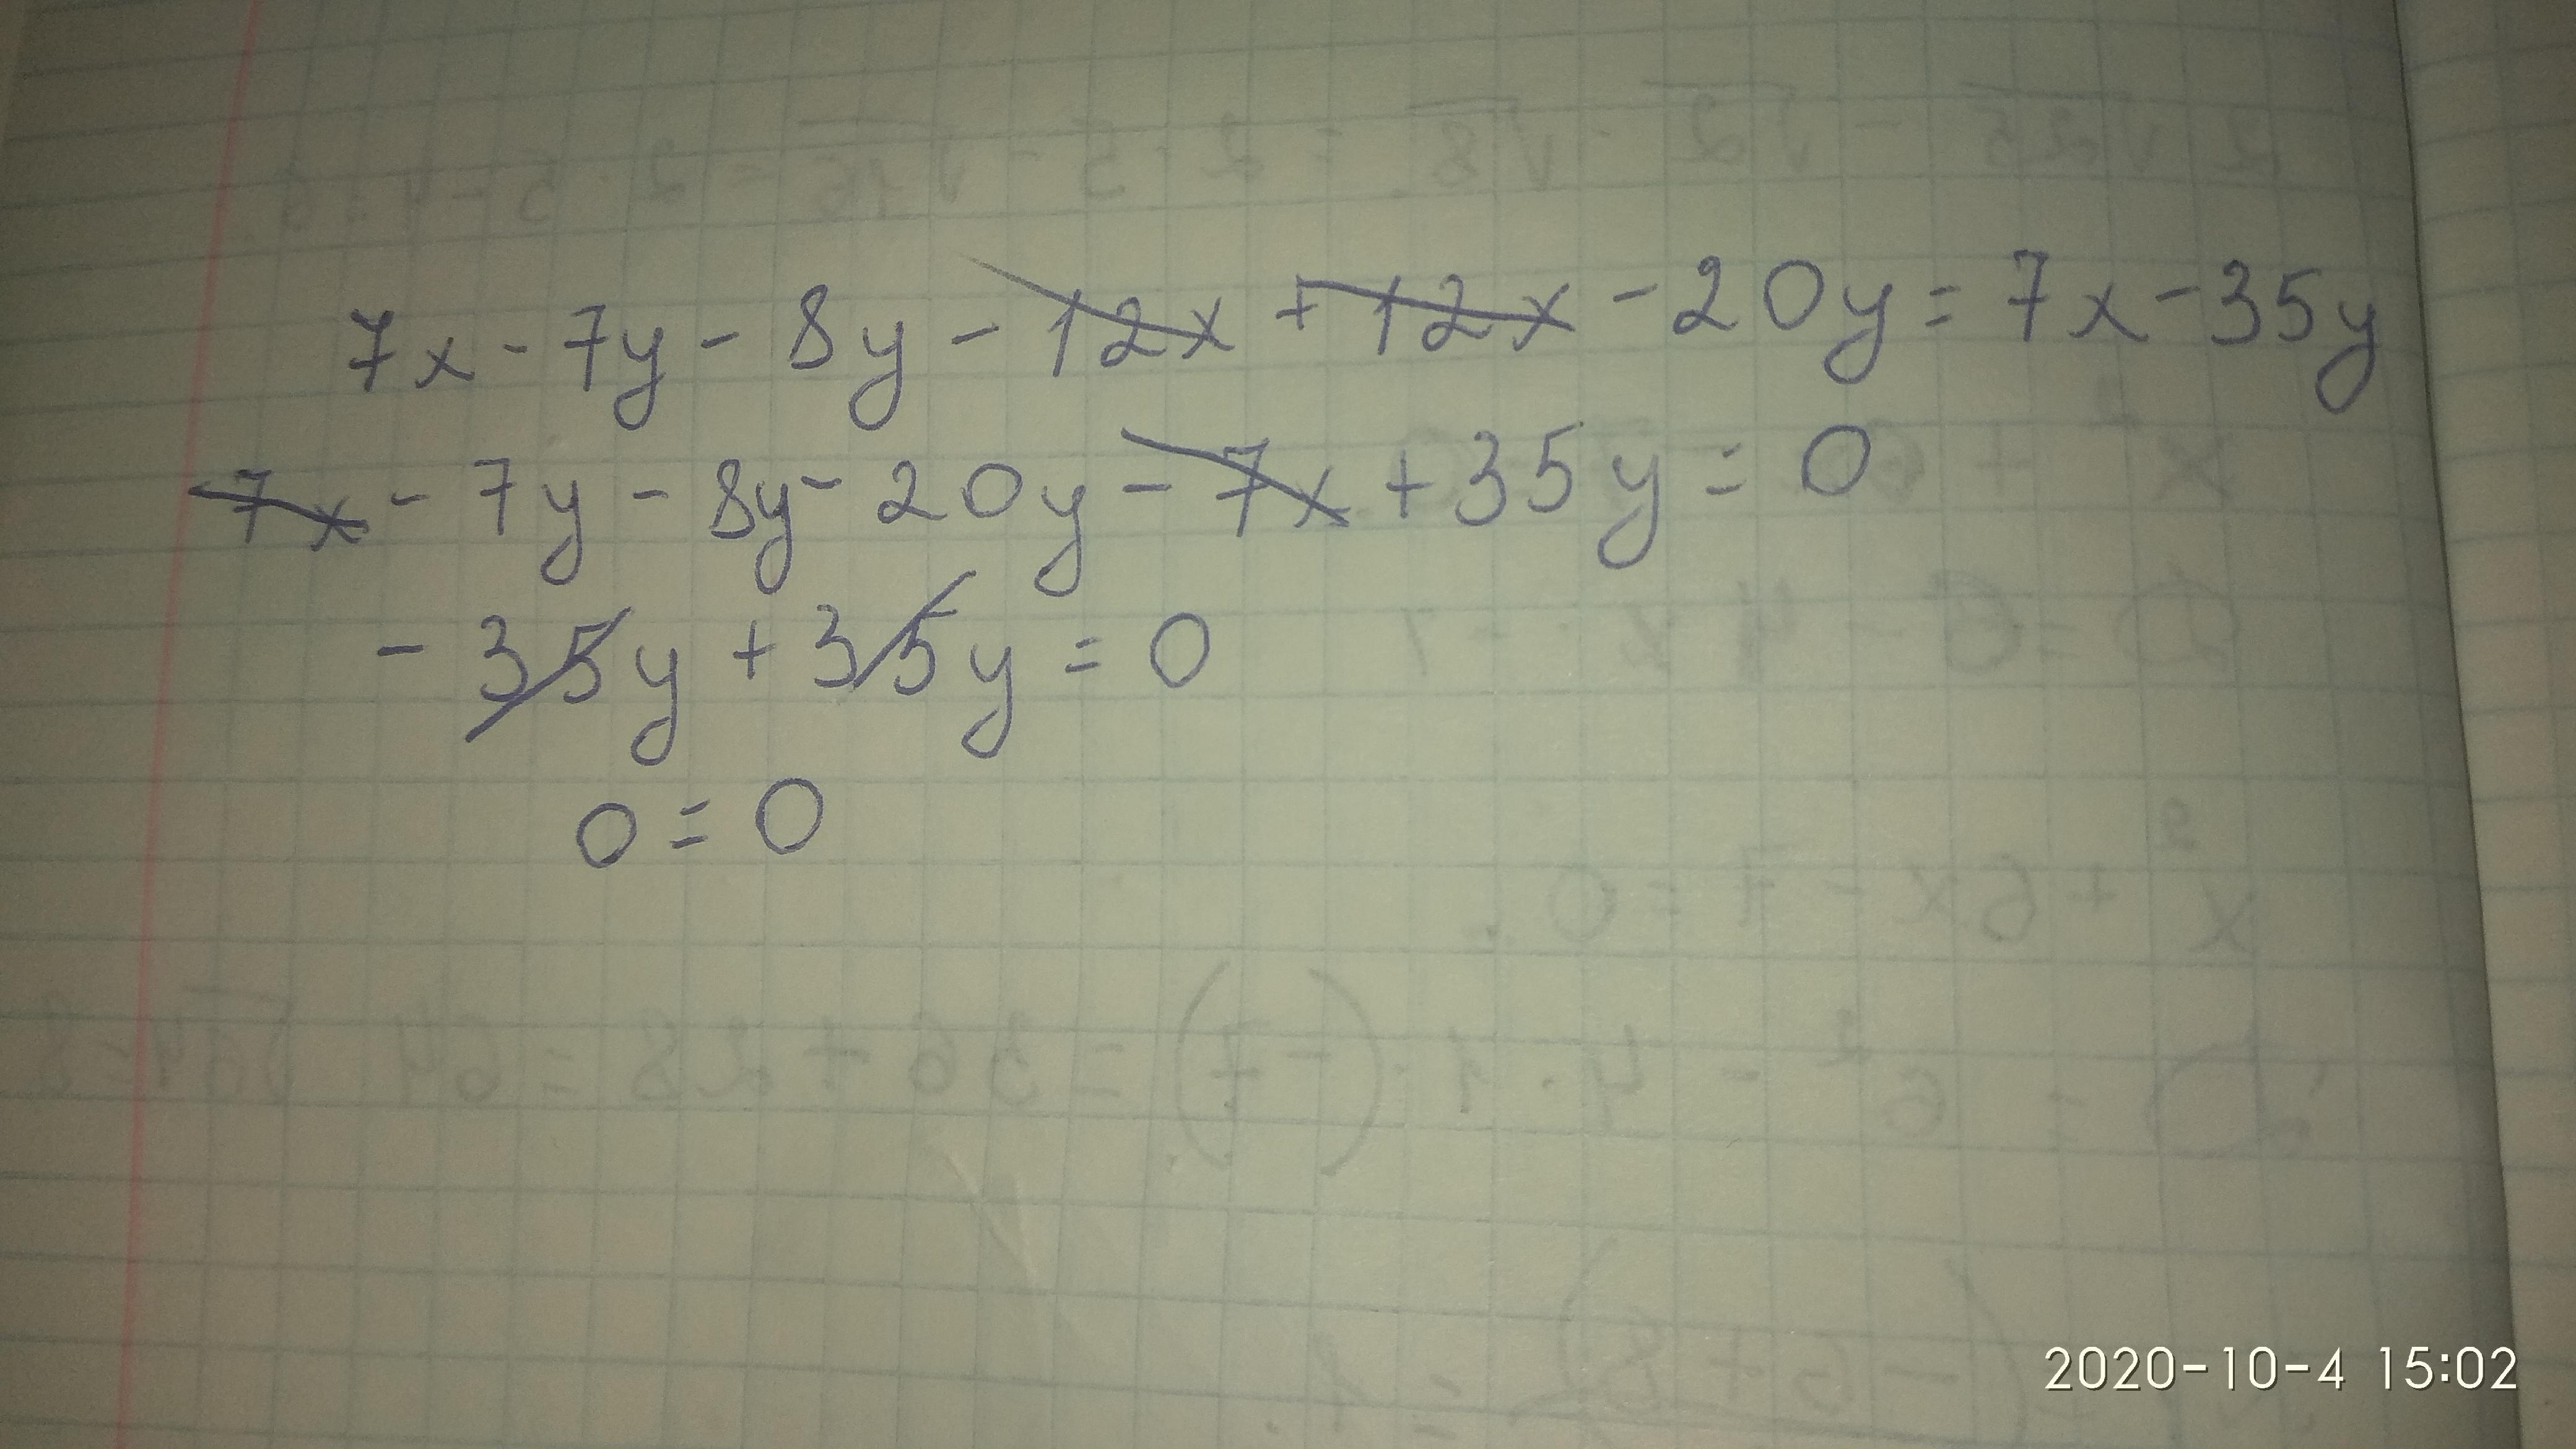 7x - 7y - 8y - 12x + 12x - 20y = 7x - 35y
7x - 7y - 8y - 20y - 7x + 35y = 0
- 35y + 35y = 0
0 = 0
2020-10-4 15:02